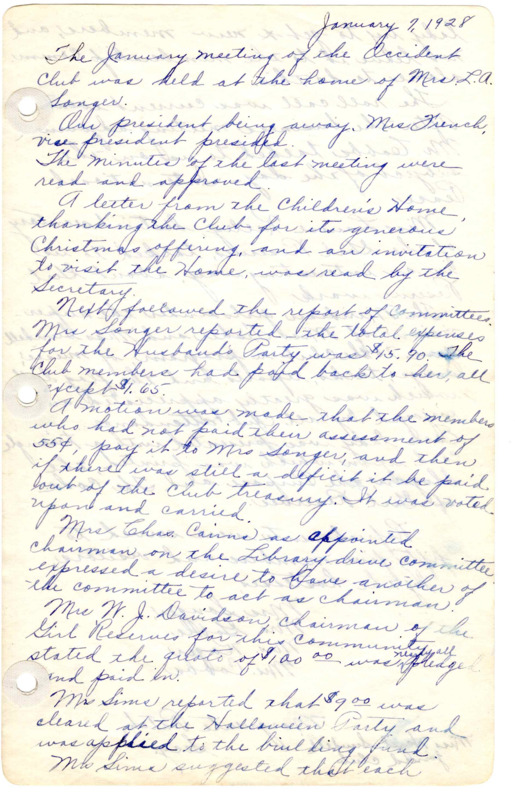 January 7, 1928
The January meeting of the Occident
Club was held at the home of Mrs L.A.
Songer.
Our president being away, Mrs French,
vice president presided.
The minutes of the last meeting were
read and approved.
A letter from the Children's Home,
thanking the Club for its generous
Christmas offering, and an invitation
to visit the Home, was read by the
Secretary.
Next followed the report of Committees.
Mrs Songer reported the total expenses
for the Husband's Party was $15.90. The
Club members had paid back to her, all
except $1.65.
A motion was made, that the members
who had not paid their assessment of
55¢, pay it to Mrs Songer, and then
if there was still a deficit it be paid
out of the Club treasury. It was voted
upon and carried.
Mrs Chas. Cairns as appointed
chairman on the Library drive committee
expressed a desire to have another of
the committee to act as chairman.
Mrs W. J. Davidson, chairman of the
Girl Reserves for this community
stated the quota of $100 00 was nearly all pledged
and paid in.
Mrs Sims reported that $9.00 was
cleared at the Halloween Party and
was applied to the building fund.
Mrs Sims suggested that each